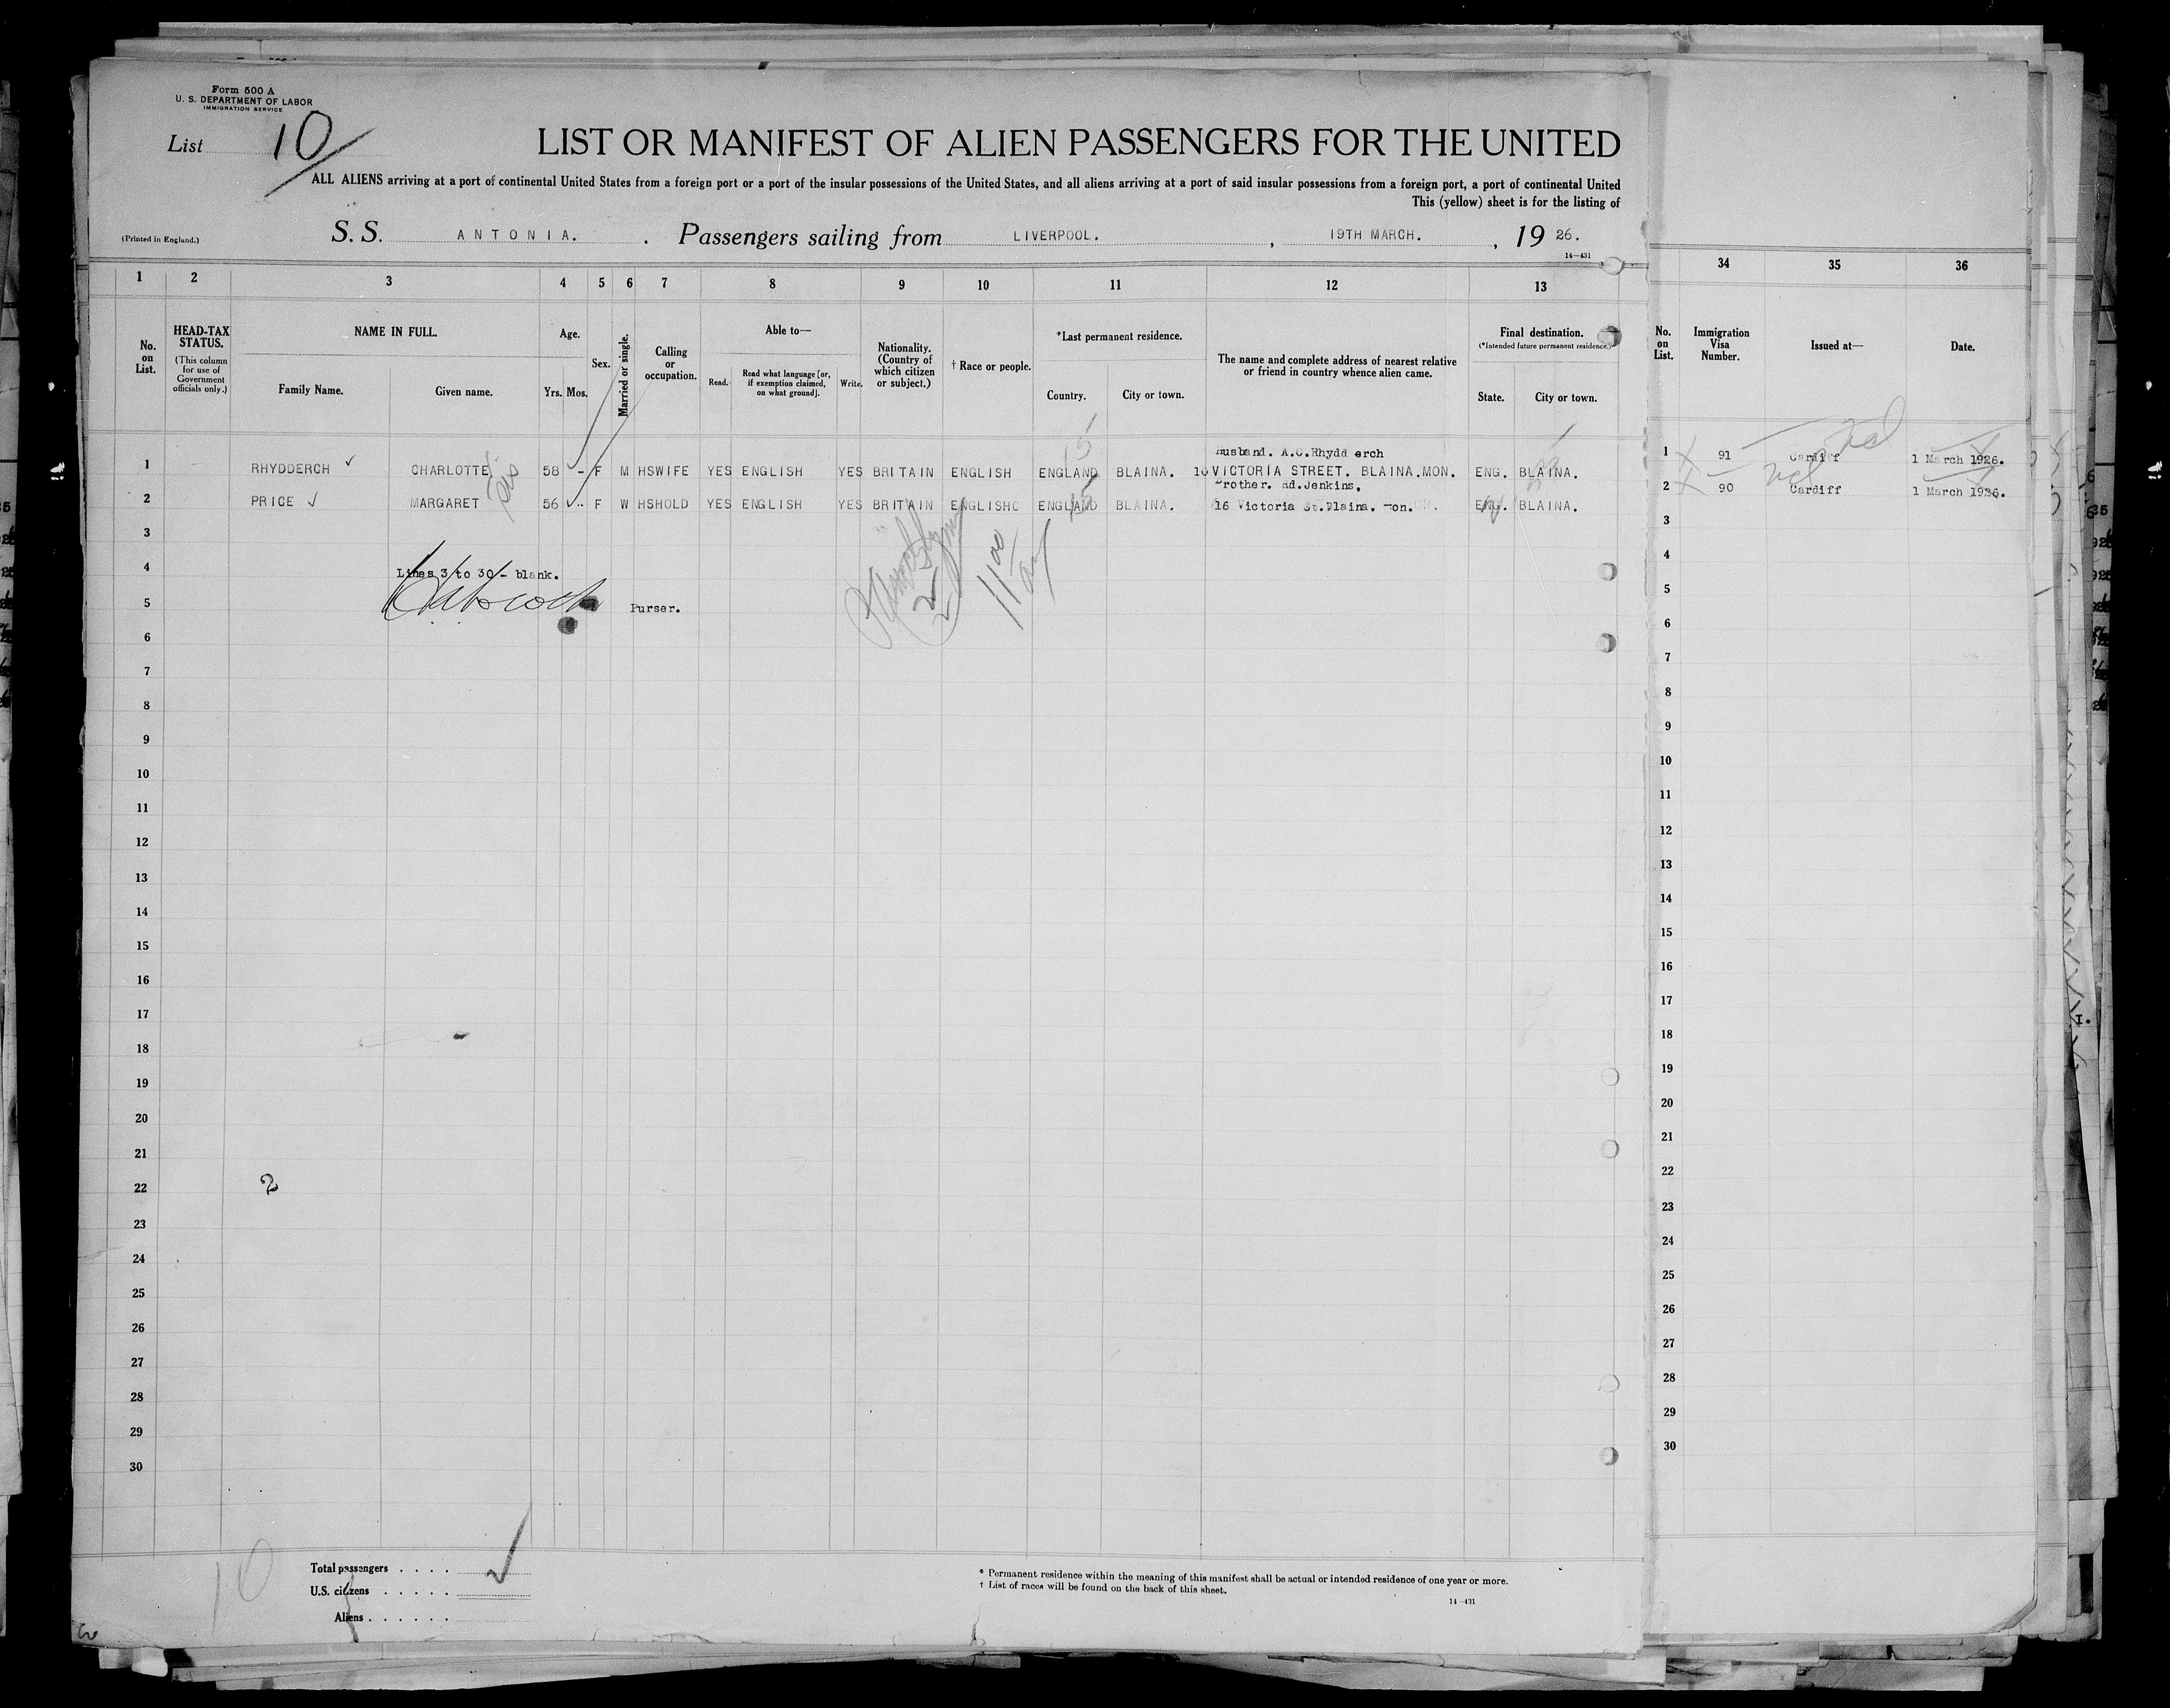 Form 500 A
U. S. DEPARTMENT OF LABOR
IMMIGRATION SERVICE
List 10
LIST OR MANIFEST OF ALIEN PASSENGERS FOR THE UNITED
ALL ALIENS arriving at a port of continental United States from a foreign port or a port of the insular possessions of the United States, and all aliens arriving at a port of said insular possessions from a foreign port, a port of continental United
This (yellow) sheet is for the listing of
(Printed in England.)
S. S. ANTONIA. . Passengers sailing from LIVERPOOL. , 19TH MARCH. , 19 26.
14-431
1 2 3 4 5 6 7 8 9 10 11 12 13 34 35 36
No. on List.
HEAD-TAX STATUS.
(This column for use of Government officials only.)
NAME IN FULL.
Family Name. Given name.
Age.
Yrs. Mos.
Sex.
Married or single.
Calling or occupation.
Able to—
Read. Read what language [or, if exemption claimed, on what ground]. Write.
Nationality. (Country of which citizen or subject.)
† Race or people.
*Last permanent residence.
Country. City or town.
The name and complete address of nearest relative or friend in country whence alien came.
Final destination.
(*Intended future permanent residence.)
State. City or town.
No. on List.
Immigration Visa Number.
Issued at—
Date.
Husband. A.C.Rhydd erch
1 RHYDDERCH CHARLOTTE 58 - F M HSWIFE YES ENGLISH YES BRITAIN ENGLISH ENGLAND BLAINA. 16 VICTORIA STREET. BLAINA.MON. ENG. BLAINA. 1 91 Cardiff 1 March 1926.
Brother. Ed.Jenkins,
2 PRICE MARGARET 56 F W HSHOLD YES ENGLISH YES BRITAIN ENGLISH ENGLAND BLAINA. 16 Victoria St.Blaina. Mon. ENG. BLAINA. 2 90 Cardiff 1 March 1926.
3 3
4 Lines 3 to 30 - blank. 4
5 Purser. 5
6 6
7 7
8 8
9 9
10 10
11 11
12 12
13 13
14 14
15 15
16 16
17 17
18 18
19 19
20 20
21 21
22 2 22
23 23
24 24
25 25
26 26
27 27
28 28
29 29
30 30
10
Total passengers . . . .
U.S. citizens . . . . .
Aliens . . . . . .
* Permanent residence within the meaning of this manifest shall be actual or intended residence of one year or more.
† List of races will be found on the back of this sheet.
14-431